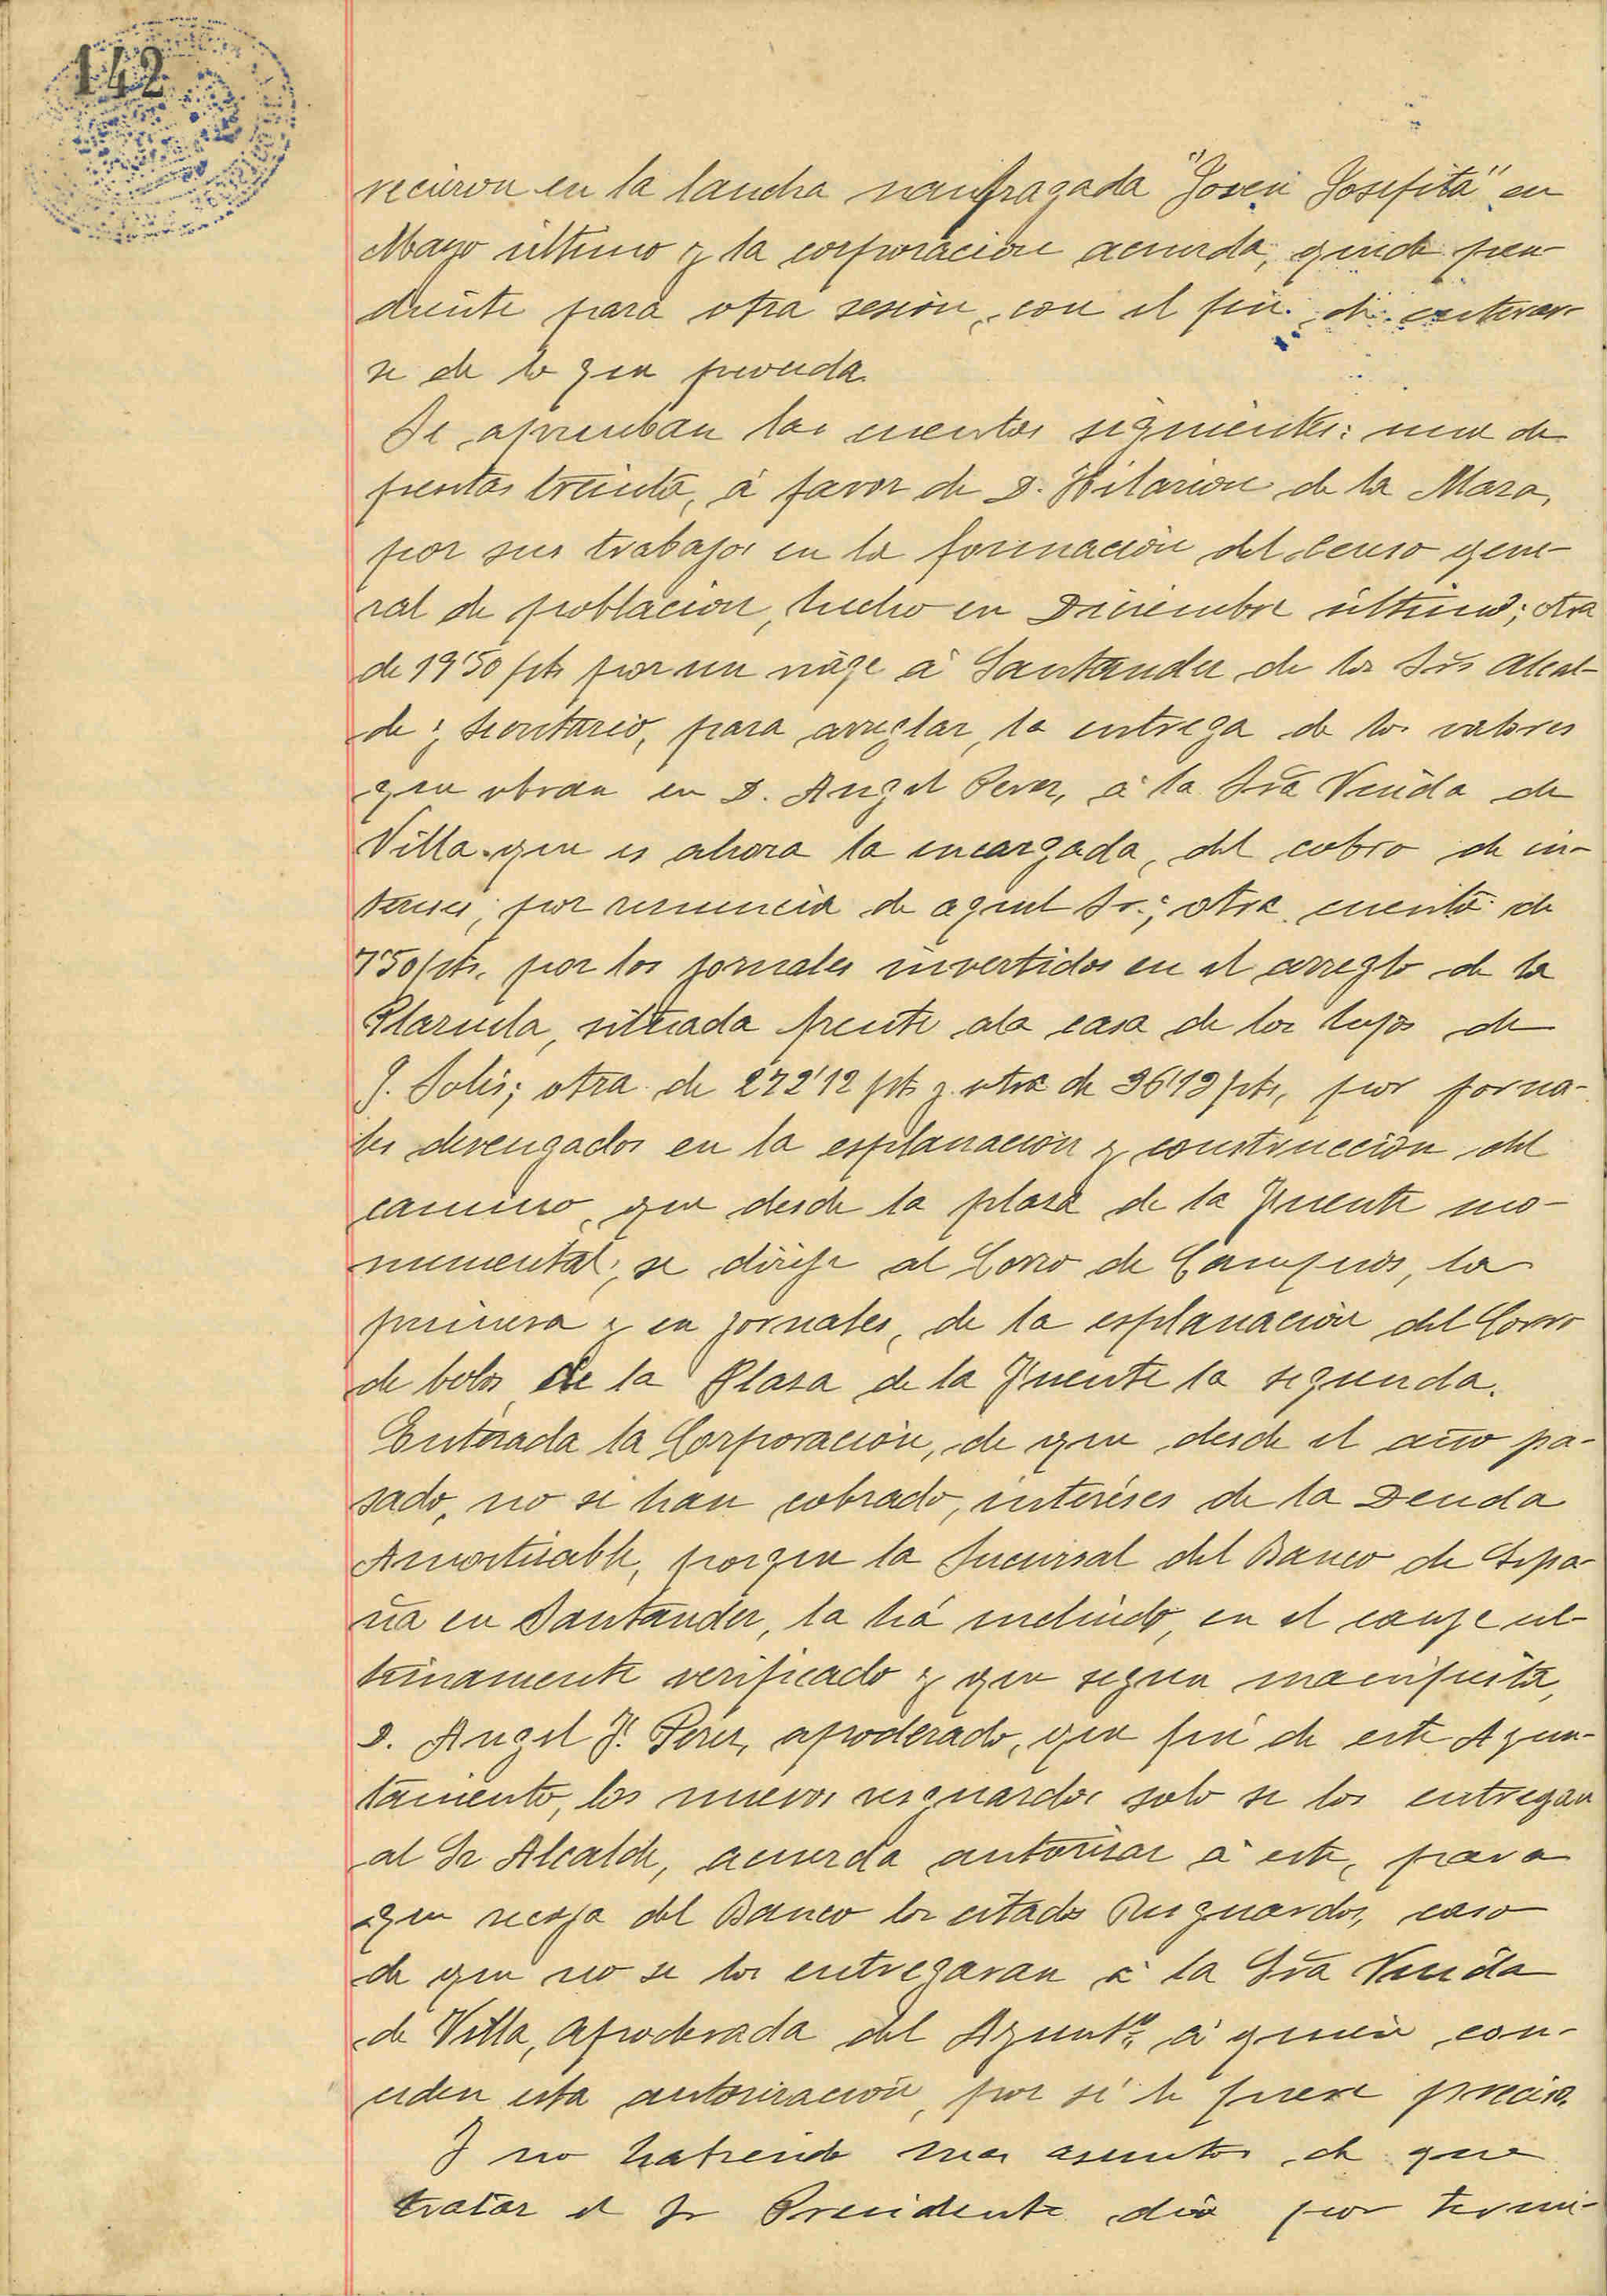 142
recieron en la lancha naufragada "Joven Josefita" en
Mayo último y la corporación acuerda, quede pen-
diente para otra sesión, con el fin de enterar-
se de lo que proceda.
Se aprueban las cuentas siguientes: una de
pesetas treinta, á favor de D. Hilarion de la Maza,
por sus trabajos en la formación del censo gene-
ral de población, hecho en Diciembre último; otra
de 19'50 pts por un viaje á Santander de los Srs Alcal-
de y Secretario, para arreglar, la entrega de los valores
que obran en D. Angel Perez, á la Sra Viuda de
Villa que es ahora la encargada, del cobro de in-
tereses, por renuncia de aquel Sr.; otra cuenta de
7'50 pts. por los jornales invertidos en el arreglo de la
Plazuela, situada frente ala casa de los hijos de
J. Solis; otra de 272'12 pts y otra de 36'13 pts, por jorna-
les devengados en la esplanación y construcción del
camino, que desde la plaza de la Fuente mo-
numental, se dirije al Corro de Campios, la
primera y en jornales, de la esplanación del Corro
de bolos de la Plasa de la Fuente la segunda.
Enterada la Corporación, de que desde el año pa-
sado, no se han cobrado, interéses de la Deuda
Amortisable, porque la Sucursal del Banco de Espa-
ña en Santander, la há incluido, en el canje ul-
timamente verificado y que segun manifiesta,
D. Angel F. Perez, apoderado, que fué de este Ayun-
tamiento, los nuevos resguardos solo se los entregan
al Sr Alcalde, acuerda autorisar á este, para
que recoja del Banco los citados Resguardos, caso
de que no se los entregaran á la Sra Viuda
de Villa, Apoderada del Ayunto, á quien con-
ceden esta autorización, por si le fuere preciso.
Y no habiendo mas asuntos de que
tratar el Sr Presidente dió por termi-